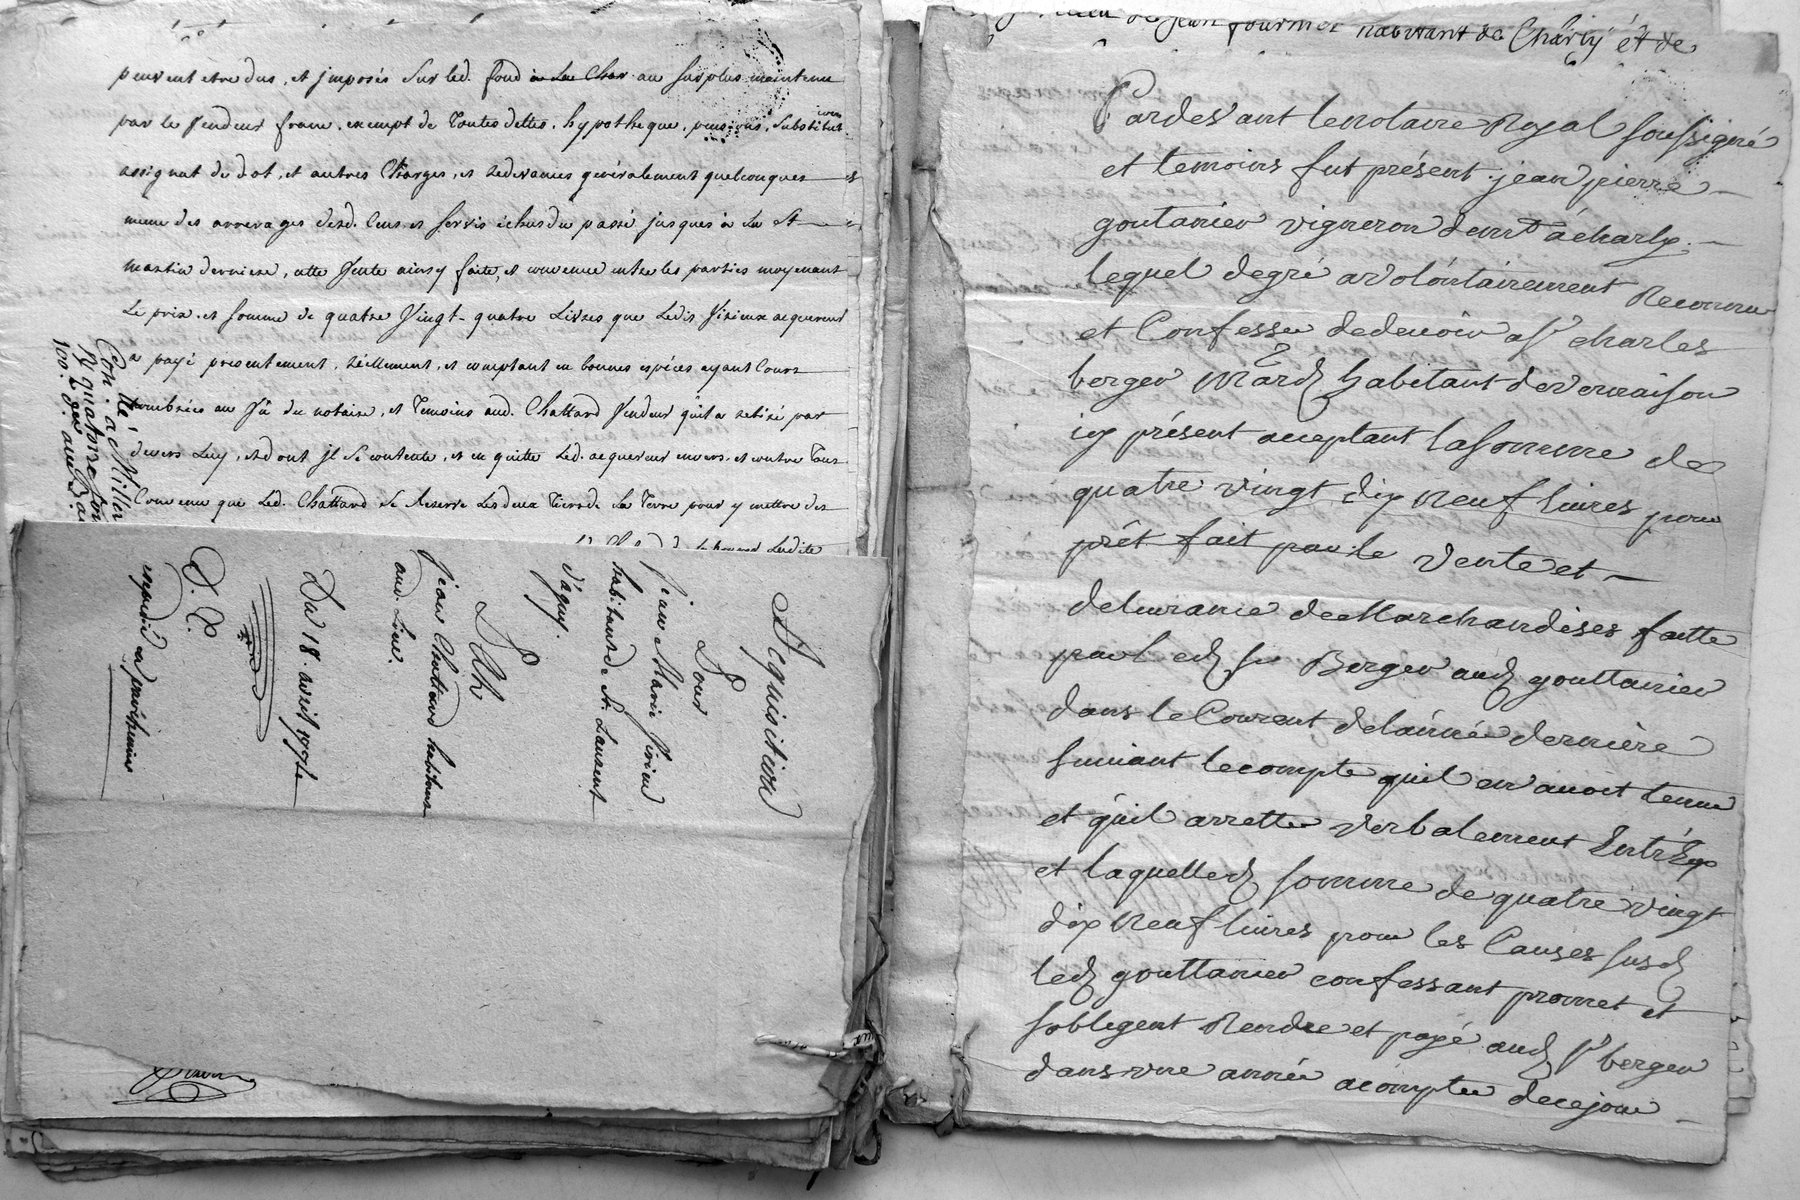 peuvent etre dus, et jmposés sur led. fond a la Char au surplus maintenu
par le Vendeur franc, exempt de Toutes dettes, hypotheque, pensions, substitut
ions
assignat de dot, et autres Charges, et redevances generalement quelconques
meme des arrerages desd. Cens et servis échus du passé jusques à la St
martin derniere, cette Vente ainsy faite, et convenue entre les parties moyenant
Le prix et somme de quatre Vingt-quatre Livres que Ledit acquereur
a payé presentement, réellement, et comptant en bonnes espèces ayant Cours
nombrées au Vû du notaire, et Temoins aud. Chattard Vendeur qui l'a retiré par
devers Luy, et dont jl se contente, et en quitte Led. acquereur envers, et contre Tous
Convenu que Led. Chattard se Reserve Les deux Tiers de La Terre pour y mettre des
Con. lé à Miller
Acquisition
Pour
jean Marie
habitant de St. Laurent
d'agny.
Sur
jean Chattard habitant
aud. Lieu.
Du 18. avril
expedié en parchemin
de jean fournier habitant de Charly et de
Pardevant le notaire Royal soussigné
et temoins fut présent jean pierre
goutanier vigneron demt à charly
lequel de gré a volontairement Reconnu
et Confessé de devoir a Sr charles
berger mard habitant de vernaison
icy présent acceptant la somme de
quatre vingt dix neuf livres pour
prêt fait par le vente et
delivrance de Marchandises faitte
par led sr Berger aud gouttanier
dans le Courant de lannée derniere
suivant le compte quil en avoit tenu
et quil arretté verbalement Entr'Eux
et laquelled somme de quatre vingt
dix neuf livres pour les Causes susd
led gouttanier confessant promet et
sobligent Rendre et payé aud Sr berger
dans une année a compter de ce jour